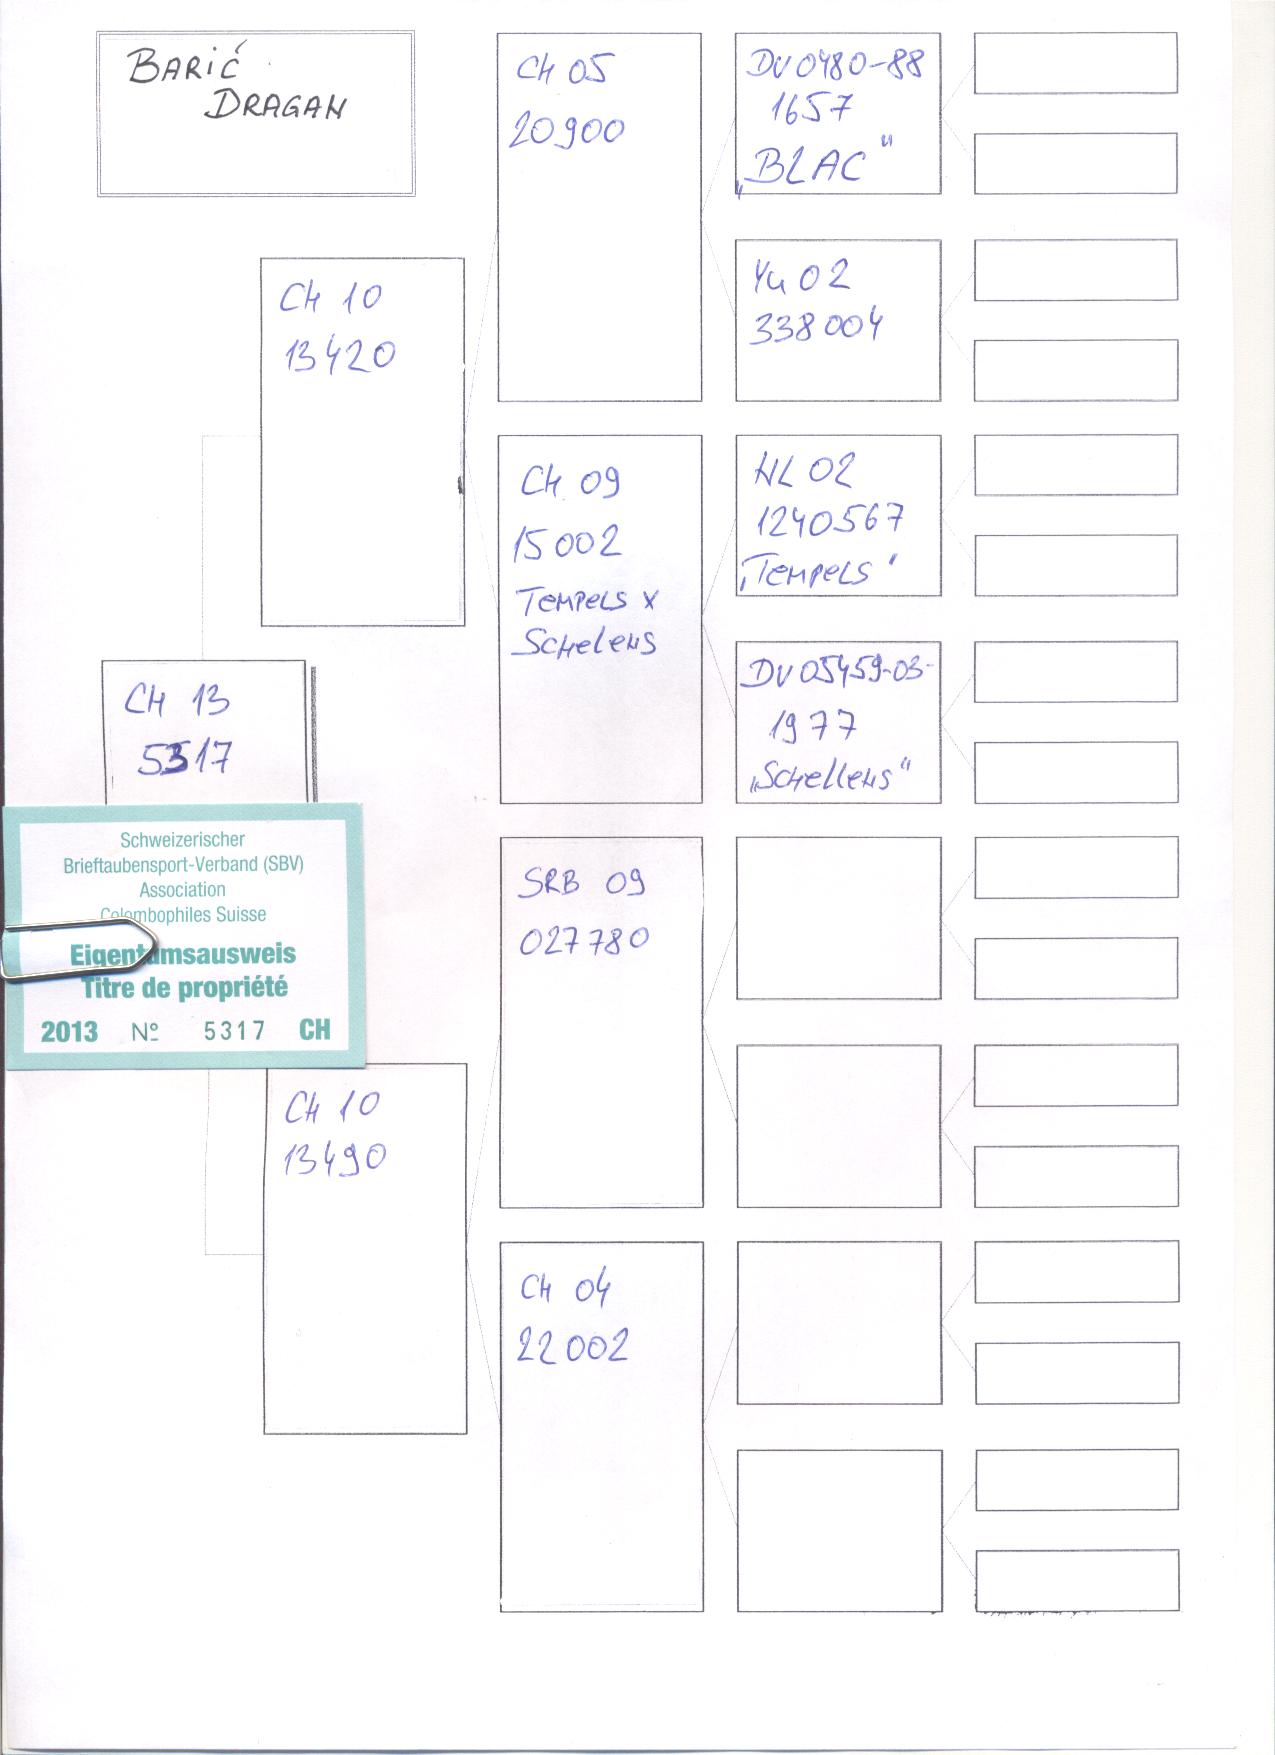 BARIĆ
DRAGAN
CH 10
13420
CH 13
5317
Schweizerischer
Brieftaubensport-Verband (SBV)
Association
Colombophiles Suisse
Eigentumsausweis
Titre de propriété
2013 Nº 5317 CH
CH 10
13490
CH 05
20900
CH 09
15002
TEMPELS x
SCHELENS
SRB 09
027780
CH 04
22002
DV0480-88
1657
„BLAC“
YU 02
338004
NL 02
1240567
„TEMPELS“
DV05459-03-
1977
„SCHELLENS“